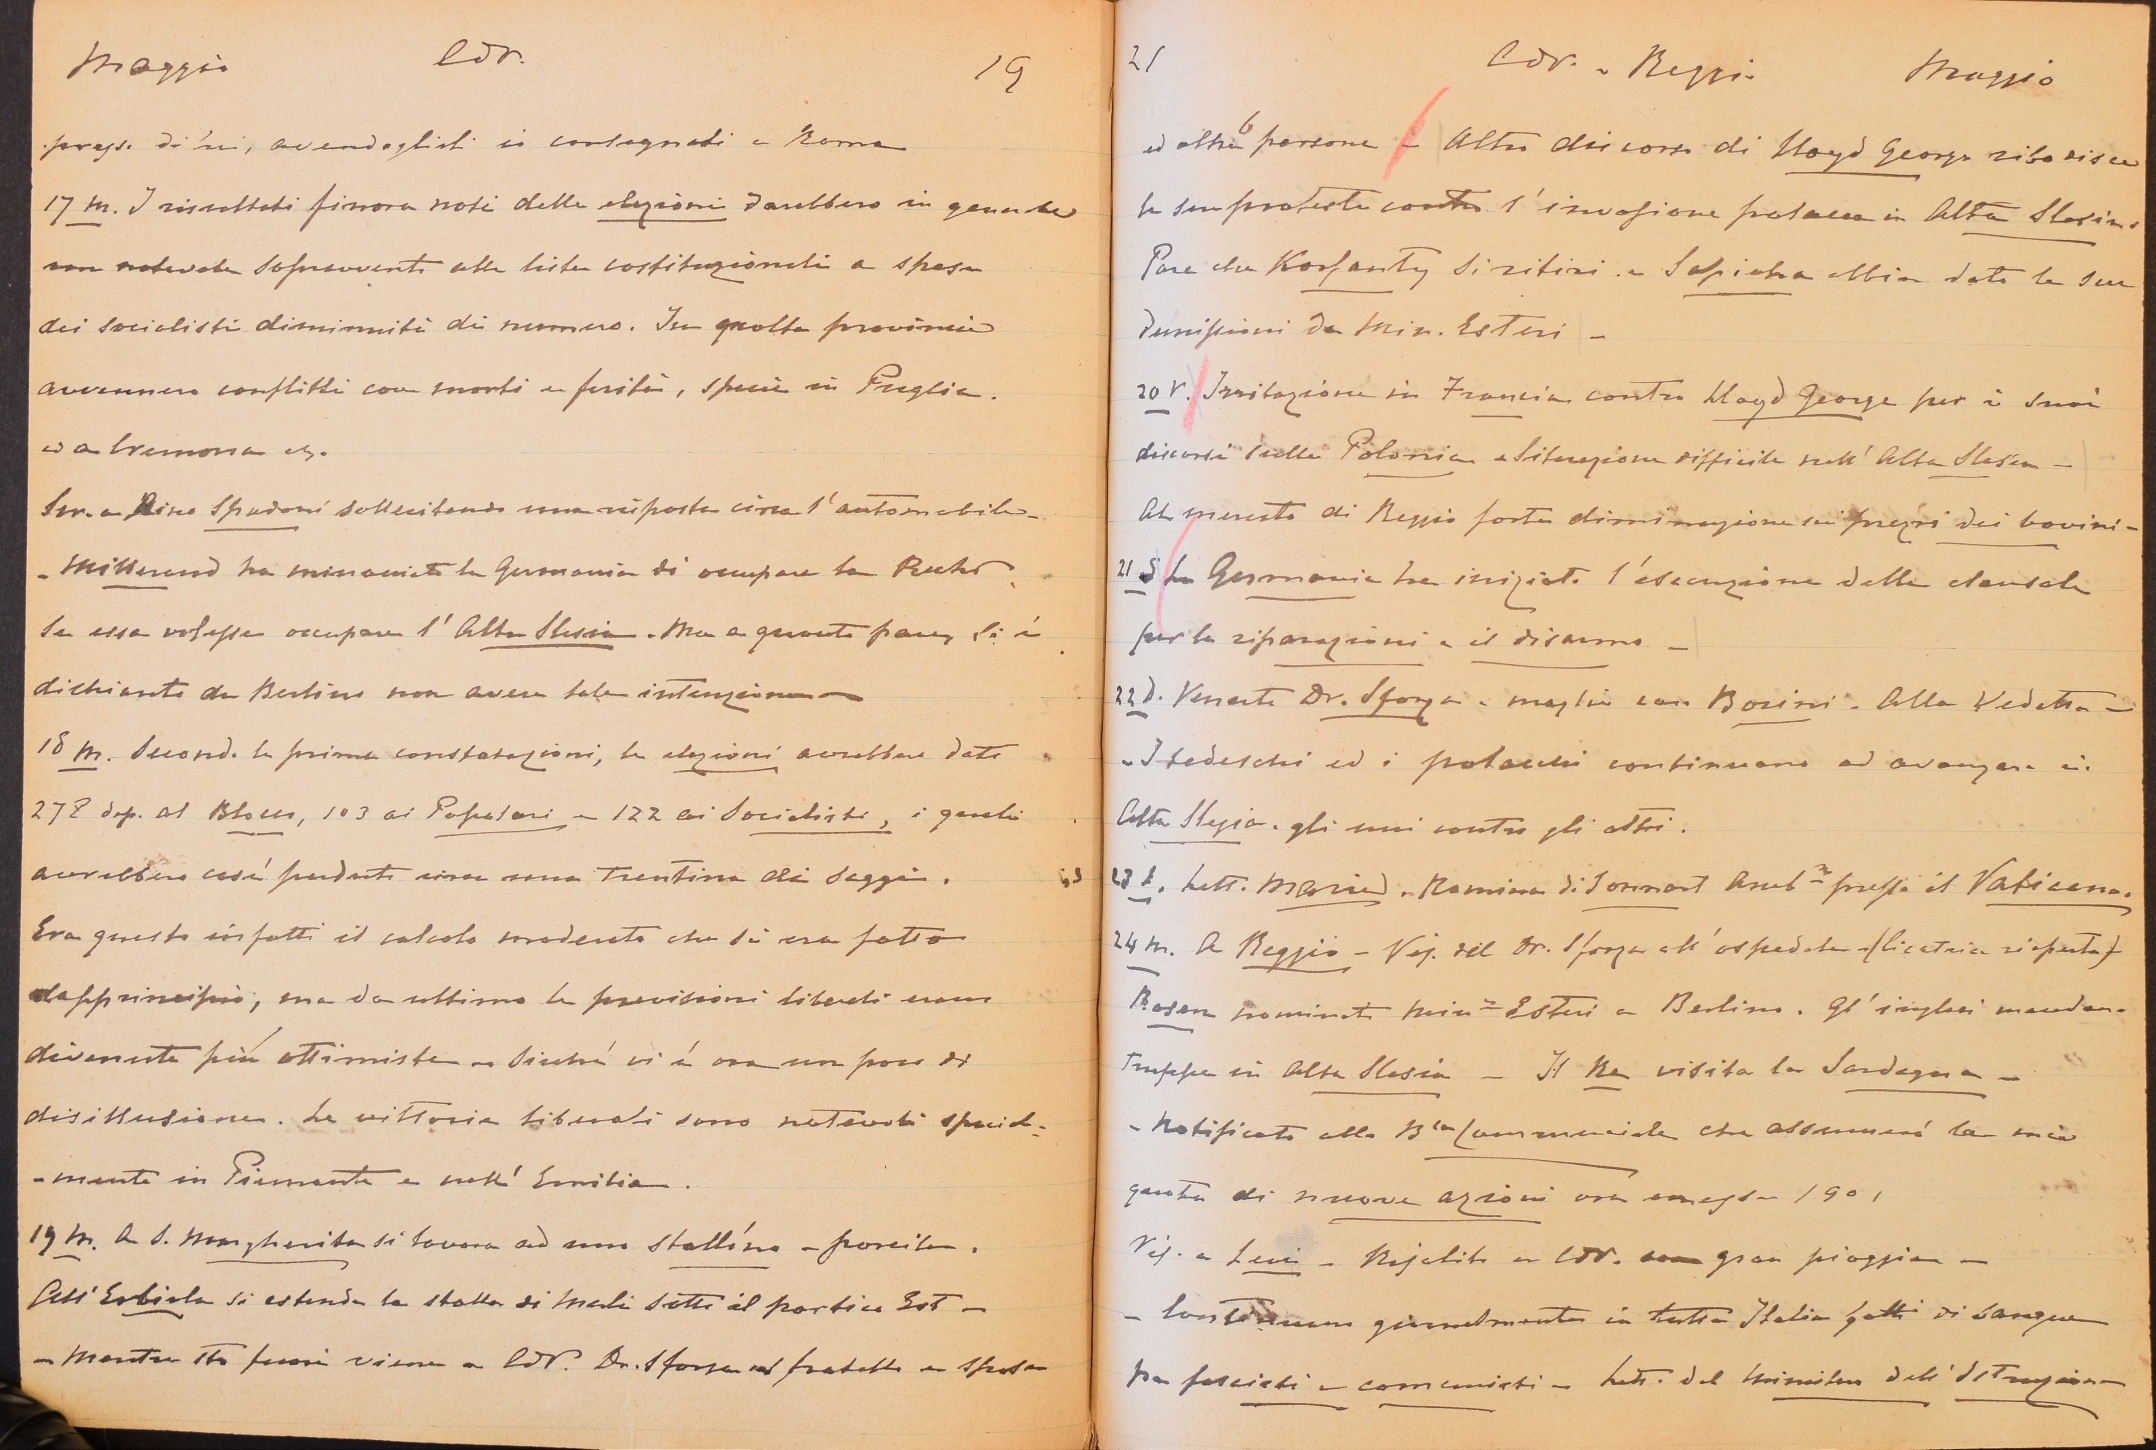 Maggio CdV. 19
press. di lui, avendoglieli io consegnati a Roma
17 M. I risultati finora noti delle elezioni darebbero in generale
un notevole sopravvento alle liste costituzionali a spese
dei socialisti diminuiti di numero. In molte provincie
avvennero conflitti con morti e feriti, specie in Puglia.
ed a Cremona ec.
Scr. a Spadoni sollecitando una risposta circa l'automobile -
- Millerand ha minacciato la Germania di occupare la Ruhr
se essa volesse occupare l'Alta Slesia. Ma a quanto pare, si è
dichiarato da Berlino non avere tale intenzione -
18 M. Secondo le prime constatazioni, le elezioni avrebbero dato
278 dep. al Blocco, 103 ai Popolari e 122 ai Socialisti, i quali
avrebbero così perduto circa una trentina di seggi.
Era questo infatti il calcolo moderato che si era fatto
dapprincipio, ma da ultimo le previsioni liberali erano
divenute più ottimiste - Sicché vi è ora un poco di
disillusione. Le vittorie liberali sono notevoli special-
-mente in Piemonte e nell'Emilia.
19 M. A S. Margherita si lavora ad uno stallino - porcile.
All'Erbiola si estende la stalla di Meli sotto il portico Est -
- Mentre sto fuori viene a CdV. Dr. Sforza col fratello e sposa
21 CdV. - Reggio Maggio
ed altre 6 persone - Altro discorso di Lloyd George ribadisce
le sue proteste contro l'invasione polacca in Alta Slesia.
Pare che Korfanty si ritiri. e Sapieha abbia dato le sue
dimissioni da Min. Esteri -
20 V. Irritazione in Francia contro Lloyd George per i suoi
discorsi sulla Polonia e Situazione difficile nell'Alta Slesia -
Al mercato di Reggio forte diminuzione sui prezzi dei bovini -
21 S La Germania ha iniziato l'esecuzione delle clausole
per le riparazioni e il disarmo -
22 D. Venuto Dr. Sforza e moglie con Borini. Alla Vedetta -
- I tedeschi ed i polacchi continuano ad avanzare in
Alta Slesia. gli uni contro gli altri.
23 L. Lett. Maried. Nomina di Jonnart Amb.re presso il Vaticano.
24 M. A Reggio - Vis. del Dr. Sforza all'ospedale - (Cicatrice riaperta)
Rosen nominato Min.o Esteri a Berlino. Gl'inglesi mandano
truppe in Alta Slesia - Il Re visita la Sardegna -
- Notificato alla B.ca Commerciale che assumerò la mia
quota di nuove azioni ora emesse 1901
Vis. a Levi - Risalito a CdV. con gran pioggia -
- Continuano giornalmente in tutta Italia fatti di sangue
fra fascisti e comunisti - Lett. del Ministero dell'Istruzione